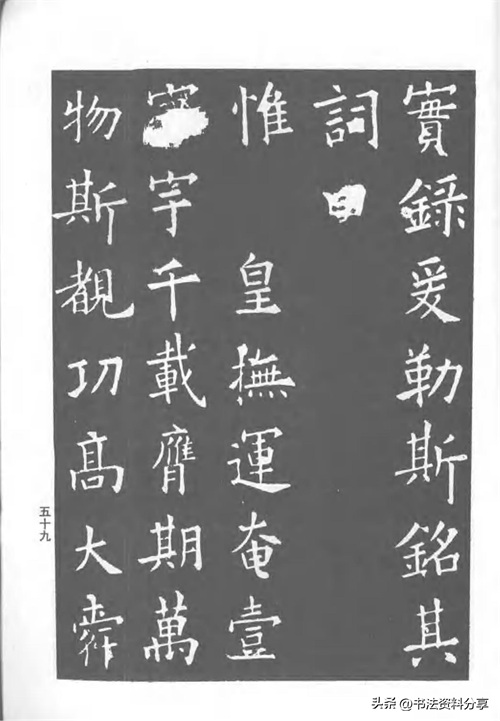 實録爰勒斯銘其
詞曰
惟 皇撫運奄壹
寰宇千載膺期萬
物斯覩功高大舜
五十九
头条 @书法资料分享